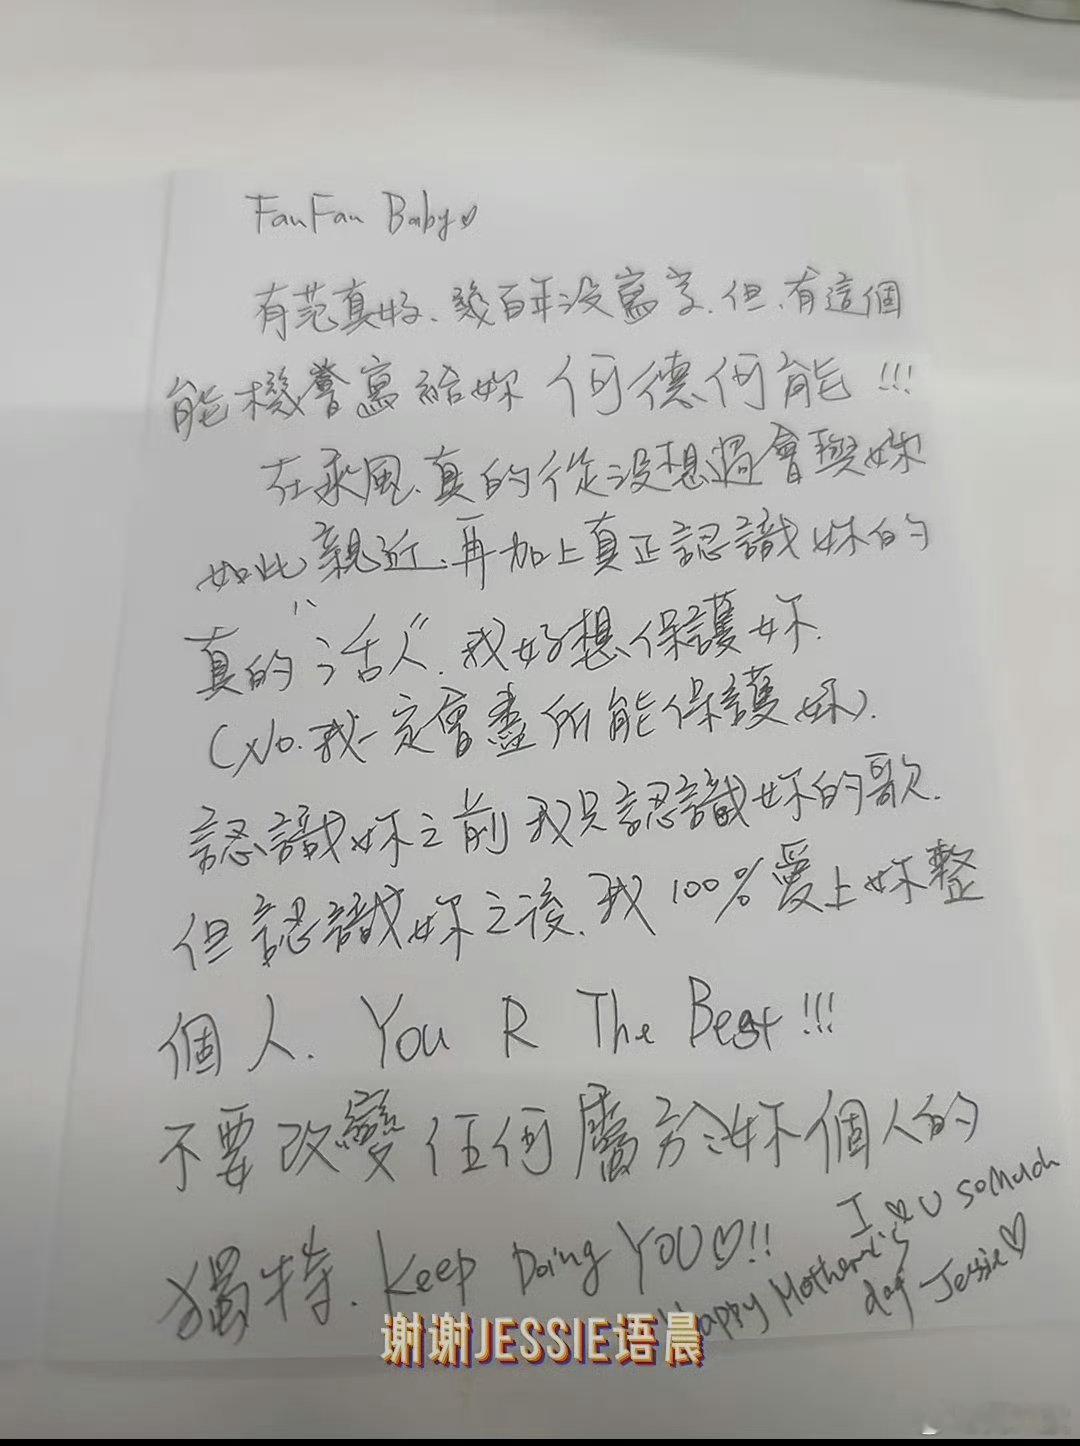 FanFan Baby♡
有范真好、幾百年沒寫字.但.有這個
能機會寫給妳 何德何能!!!
在乘風.真的從沒想過會與妳
如此親近.再加上真正認識妳的
真的"活人".我好想保護妳.
(No.我一定會盡所能保護妳).
認識妳之前我只認識妳的歌.
但認識妳之後.我100%愛上妳整
個人. You R The Best!!!
不要改變任何屬於妳個人的
獨特. Keep Doing YOU♡!!
I ♡ U so Much
Happy Mother's day Jessie♡
谢谢JESSIE语晨